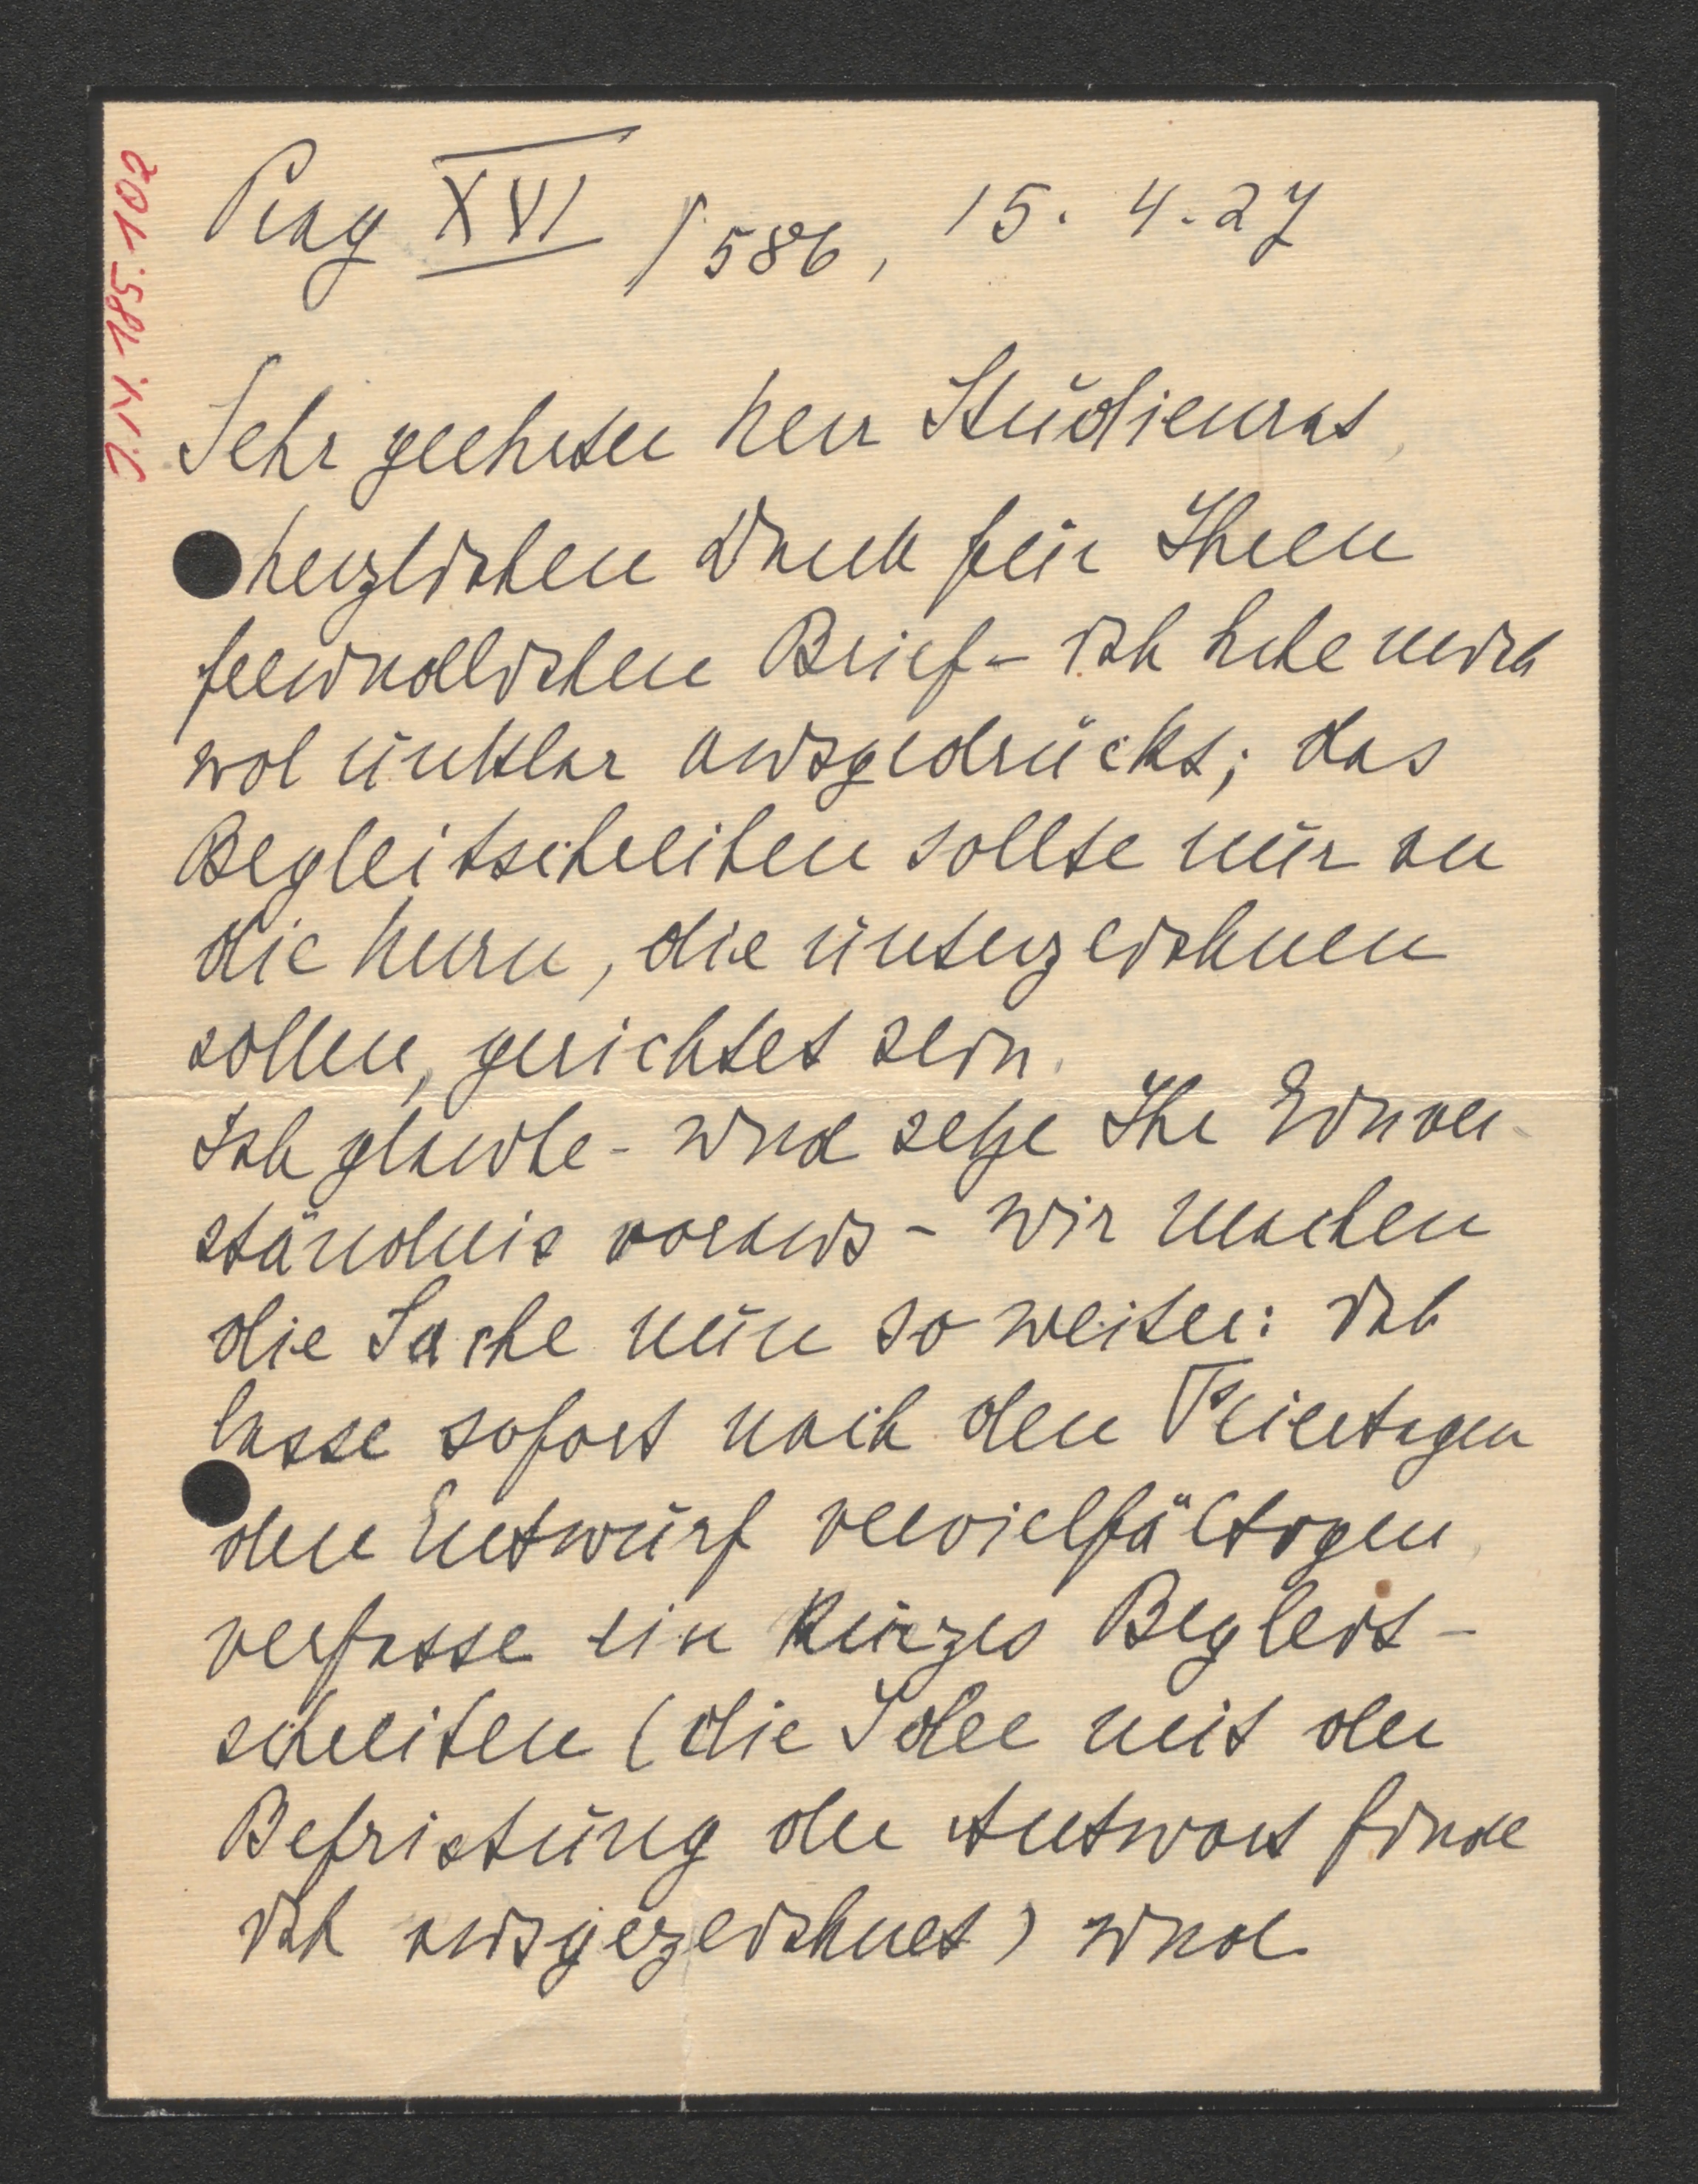 Prag XVI / 586, 15. 4. 27
Sehr geehrter Herr Studienrat,
herzlichen Dank für Ihren
freundlichen Brief - ich habe mich
wol unklar ausgedrückt; das
Begleitschreiben sollte nur an
die Herrn, die unterzeichnen
sollen, gerichtet sein.
Ich glaube - und setze Ihr Einver-
ständnis voraus - wir machen
die Sache nun so weiter: Ich
lasse sofort nach den Feiertagen
den Entwurf vervielfältigen,
verfasse ein kurzes Begleit-
schreiben (die Idee mit der
Befristung der Antwort finde
ich ausgezeichnet) und
I.N. 185.102